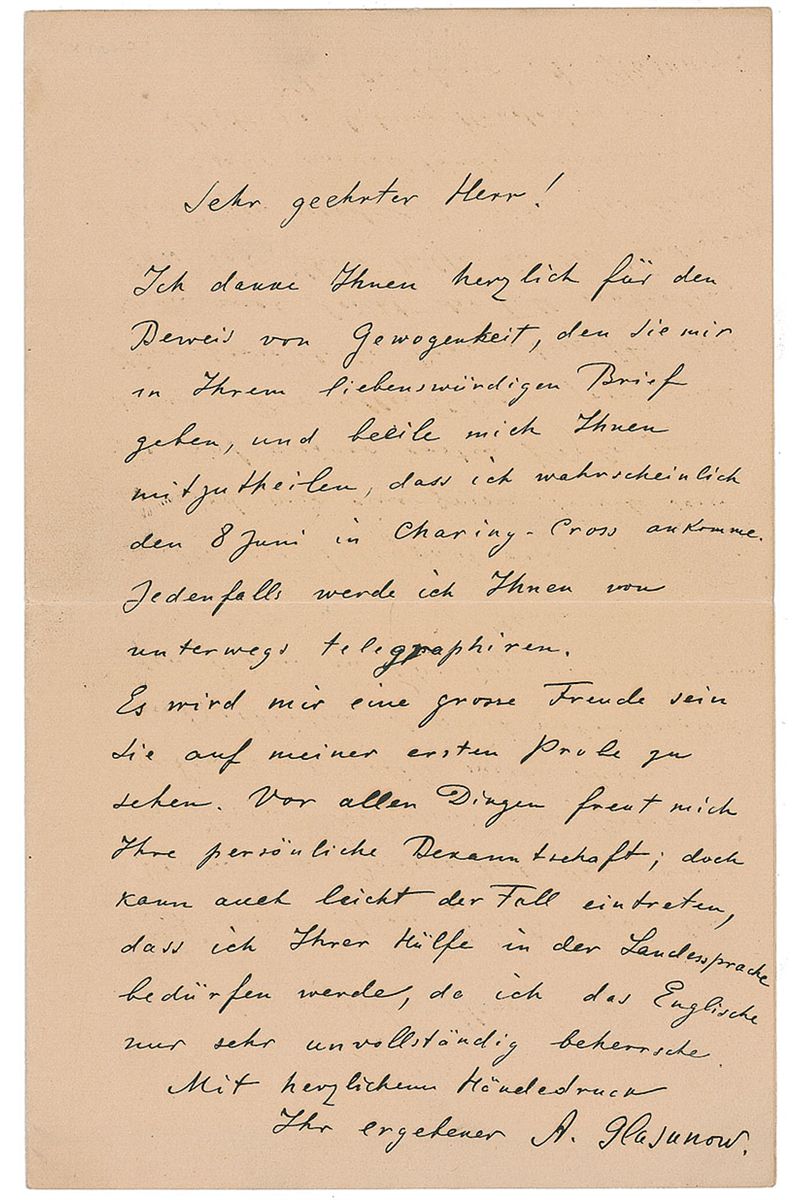 Sehr geehrter Herr!
Ich danke Ihnen herzlich für den
Beweis von Gewogenkeit, den Sie mir
in Ihrem liebenswürdigen Brief
geben, und beeile mich Ihnen
mitzutheilen, dass ich wahrscheinlich
den 8 Juni in Charing-Cross ankomme.
Jedenfalls werde ich Ihnen von
unterwegs telegraphiren.
Es wird mir eine grosse Freude sein
Sie auf meiner ersten Probe zu
sehen. Vor allen Dingen freut mich
Ihre persönliche Bekanntschaft; doch
kann auch leicht der Fall eintreten,
dass ich Ihrer Hülfe in der Landessprache
bedürfen werde, da ich das Englische
nur sehr unvollständig beherrsche.
Mit herzlichem Händedruck
Ihr ergebener A. Glasunow.